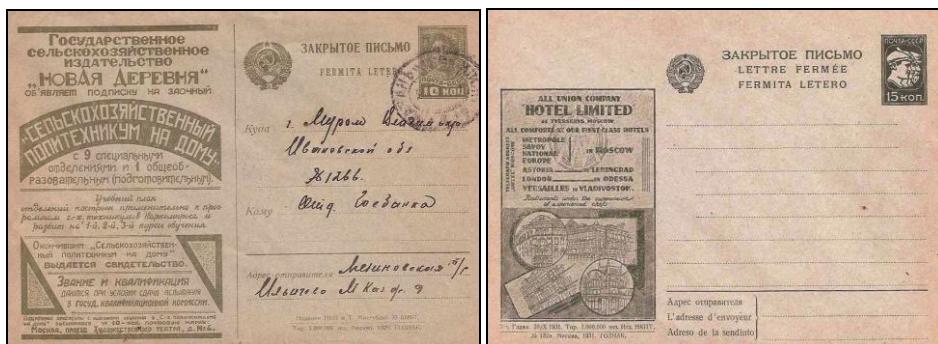 Государственное
сельскохозяйственное
издательство
„НОВАЯ ДЕРЕВНЯ“
ОБ'ЯВЛЯЕТ ПОДПИСКУ НА ЗАОЧНЫЙ
„СЕЛЬСКОХОЗЯЙСТВЕННЫЙ
ПОЛИТЕХНИКУМ НА ДОМУ“
с 9 специальными
отделениями и 1 общеоб-
разовательным (подготовительным).
Учебный план
отделений построен применительно к прог-
раммам с.-х. техникумов Наркомпроса и
развит на 1-й, 2-й, 3-й курсы обучения
Окончившим „Сельскохозяйствен-
ный политехникум на дому“
ВЫДАЕТСЯ СВИДЕТЕЛЬСТВО.
Звание и квалификация
даются при условии сдачи испытания
в госуд. квалификационной комиссии.
Москва, проезд Художественного театра, д. №6.
ЗАКРЫТОЕ ПИСЬМО
FERMITA LETERO
10 КОП
Куда г. Муром
Ивановской обл
Кому Госбанка
Адрес отправителя
ЗАКРЫТОЕ ПИСЬМО
LETTRE FERMÉE
FERMITA LETERO
ПОЧТА СССР
15 КОП.
ALL UNION COMPANY
"HOTEL LIMITED"
MOSCOW
ALL COMFORTS AT OUR FIRST-CLASS HOTELS
METROPOLE
SAVOY
NATIONAL
EUROPE
IN MOSCOW
ASTORIA IN LENINGRAD
LONDON IN ODESSA
VERSAILLES IN VLADIVOSTOK.
Restaurants under the supervision
of experienced chefs
Адрес отправителя
L'adresse d'envoyeur
Adreso de la sendinto